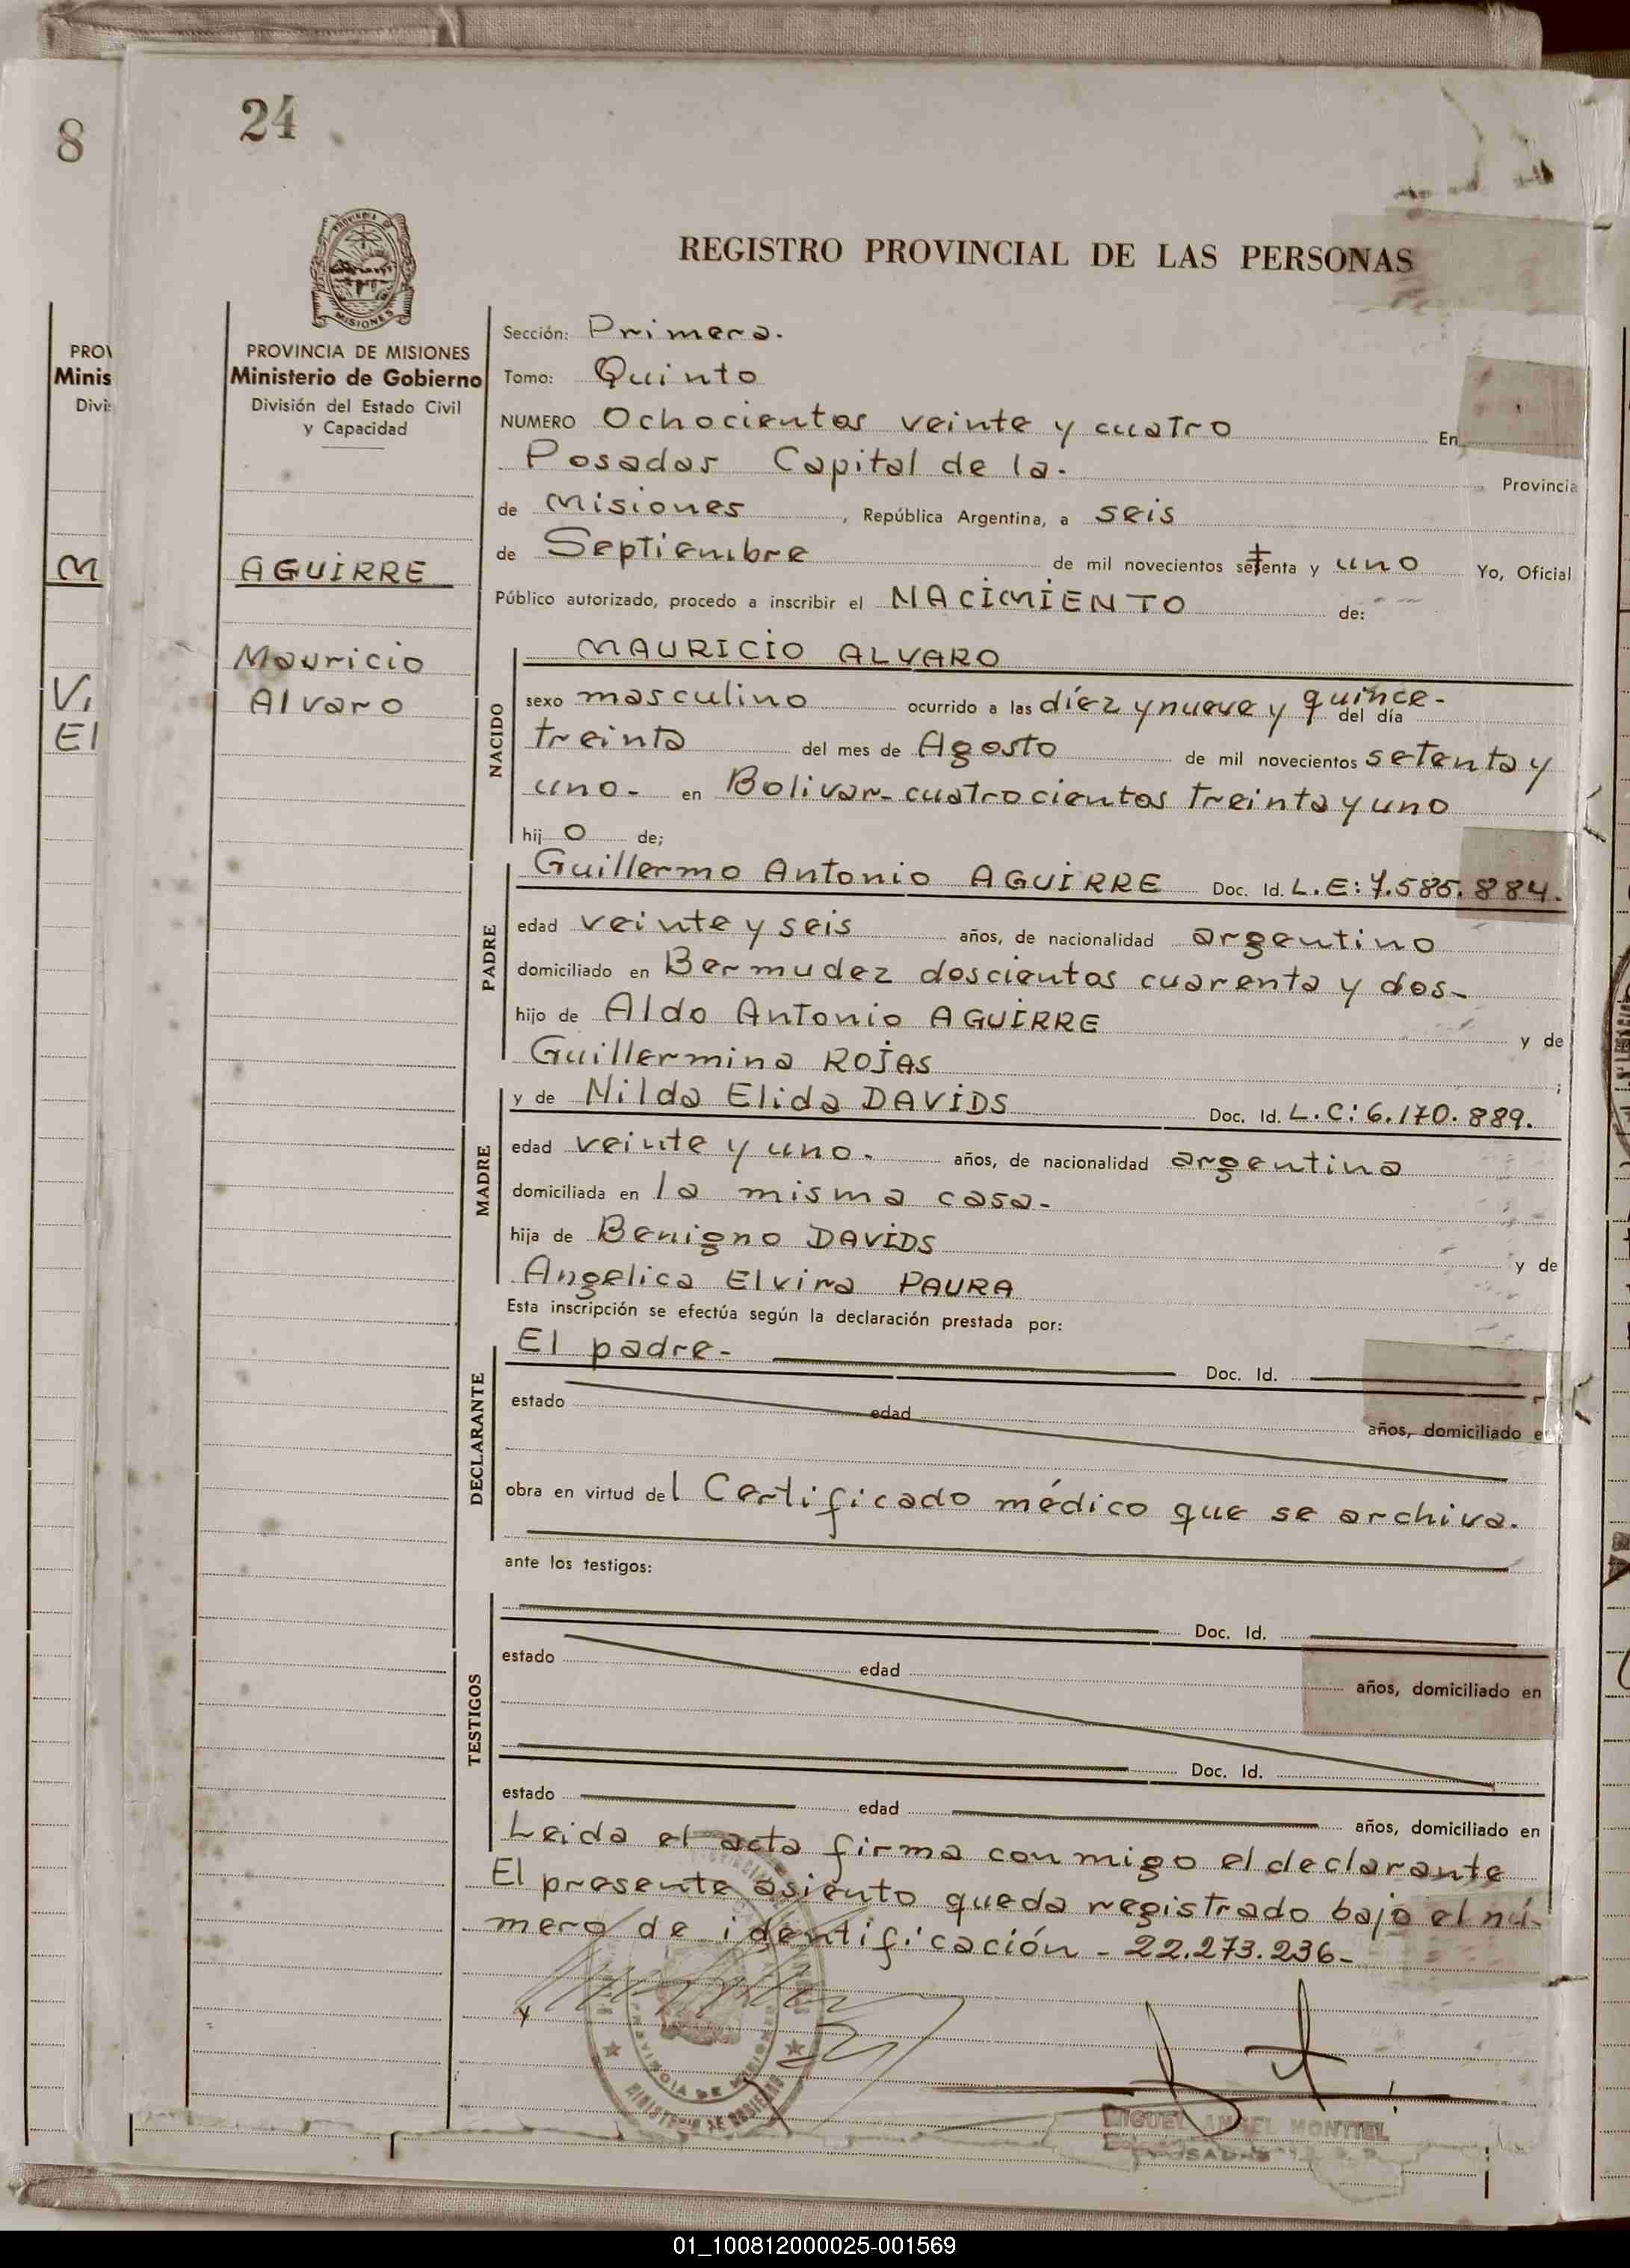 8
24
PROVINCIA
MISIONES
REGISTRO PROVINCIAL DE LAS PERSONAS
PROV
Minis
Divi
M
Vi
El
PROVINCIA DE MISIONES
Ministerio de Gobierno
División del Estado Civil
y Capacidad
AGUIRRE
Mauricio
Alvaro
Sección: Primera.
Tomo: Quinto
NUMERO Ochocientos veinte y cuatro En
Posadas Capital de la. Provincia
de Misiones, República Argentina, a seis
de Septiembre de mil novecientos setenta y uno Yo, Oficial
Público autorizado, procedo a inscribir el NACIMIENTO de:
NACIDO
MAURICIO ALVARO
sexo masculino ocurrido a las díez y nueve y quince- del día
treinta del mes de Agosto de mil novecientos setenta y
uno- en Bolivar-cuatrocientos treinta y uno
hij o de;
PADRE
Guillermo Antonio AGUIRRE Doc. Id. L.E: 7.585.884.
edad veinte y seis años, de nacionalidad argentino
domiciliado en Bermudez doscientos cuarenta y dos-
hijo de Aldo Antonio AGUIRRE y de
Guillermina ROJAS ;
MADRE
y de Nilda Elida DAVIDS Doc. Id. L.C: 6.170.889.
edad veinte y uno. años, de nacionalidad argentina
domiciliada en la misma casa-
hija de Benigno DAVIDS y de
Angelica Elvira PAURA
Esta inscripción se efectúa según la declaración prestada por:
DECLARANTE
El padre- Doc. Id.
estado edad años, domiciliado e
obra en virtud del Certificado médico que se archiva.
ante los testigos:
TESTIGOS
Doc. Id.
estado edad años, domiciliado en
Doc. Id.
estado edad años, domiciliado en
Leida el acta firma conmigo el declarante
El presente asiento queda registrado bajo el nú-
mero de identificación - 22.273.236-
PROVINCIA DE MISIONES
MINISTERIO DE GOBIERNO
MIGUEL ANGEL MONTIEL
POSADAS
01_100812000025-001569